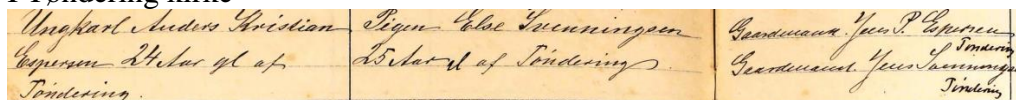 I Tøndering kirke
Ungkarl Anders Kristian
Espersen 24 Aar gl af
Tøndering.
Pigen Else Svenningsen
25 Aar gl af Tøndering
Gaardmand. Jens P. Espersen
Tøndering
Gaardmand. Jens Svenningsen
Tøndering